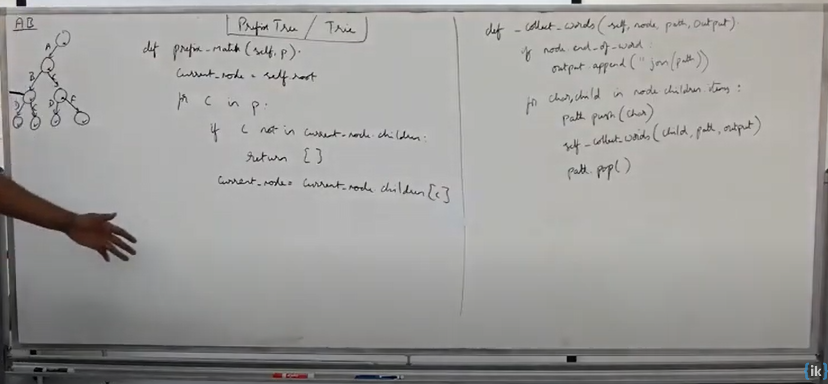 AB
Prefix Tree / Trie
def prefix_match(self, p).
current_node = self.root
for c in p.
if c not in current_node.children:
return [ ]
current_node = current_node.children[c]
A
B
D
D
def _collect_words(self, node, path, output).
if node.end_of_word:
output.append(''join(path))
for char, child in node children items:
path push(char)
self _collect_words(child, path, output)
path.pop()
ik